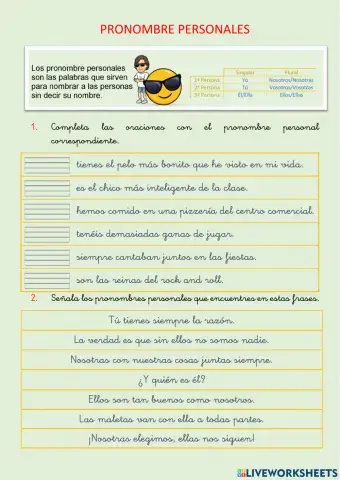 PRONOMBRE PERSONALES
Los pronombre personales
son las palabras que sirven
para nombrar a las personas
sin decir su nombre.
Singular Plural
1ª Persona Yo Nosotros/Nosotras
2ª Persona Tú Vosotros/Vosotras
3ª Persona Él/Ella Ellos/Ellas
1. Completa las oraciones con el pronombre personal
correspondiente.
tienes el pelo más bonito que he visto en mi vida.
es el chico más inteligente de la clase.
hemos comido en una pizzería del centro comercial.
tenéis demasiadas ganas de jugar.
siempre cantaban juntos en las fiestas.
son las reinas del rock and roll.
2. Señala los pronombres personales que encuentres en estas frases.
Tú tienes siempre la razón.
La verdad es que sin ellos no somos nadie.
Nosotras con nuestras cosas juntas siempre.
¿Y quién es él?
Ellos son tan buenos como nosotros.
Las maletas van con ella a todas partes.
¡Nosotras elegimos, ellas nos siguen!
LIVEWORKSHEETS